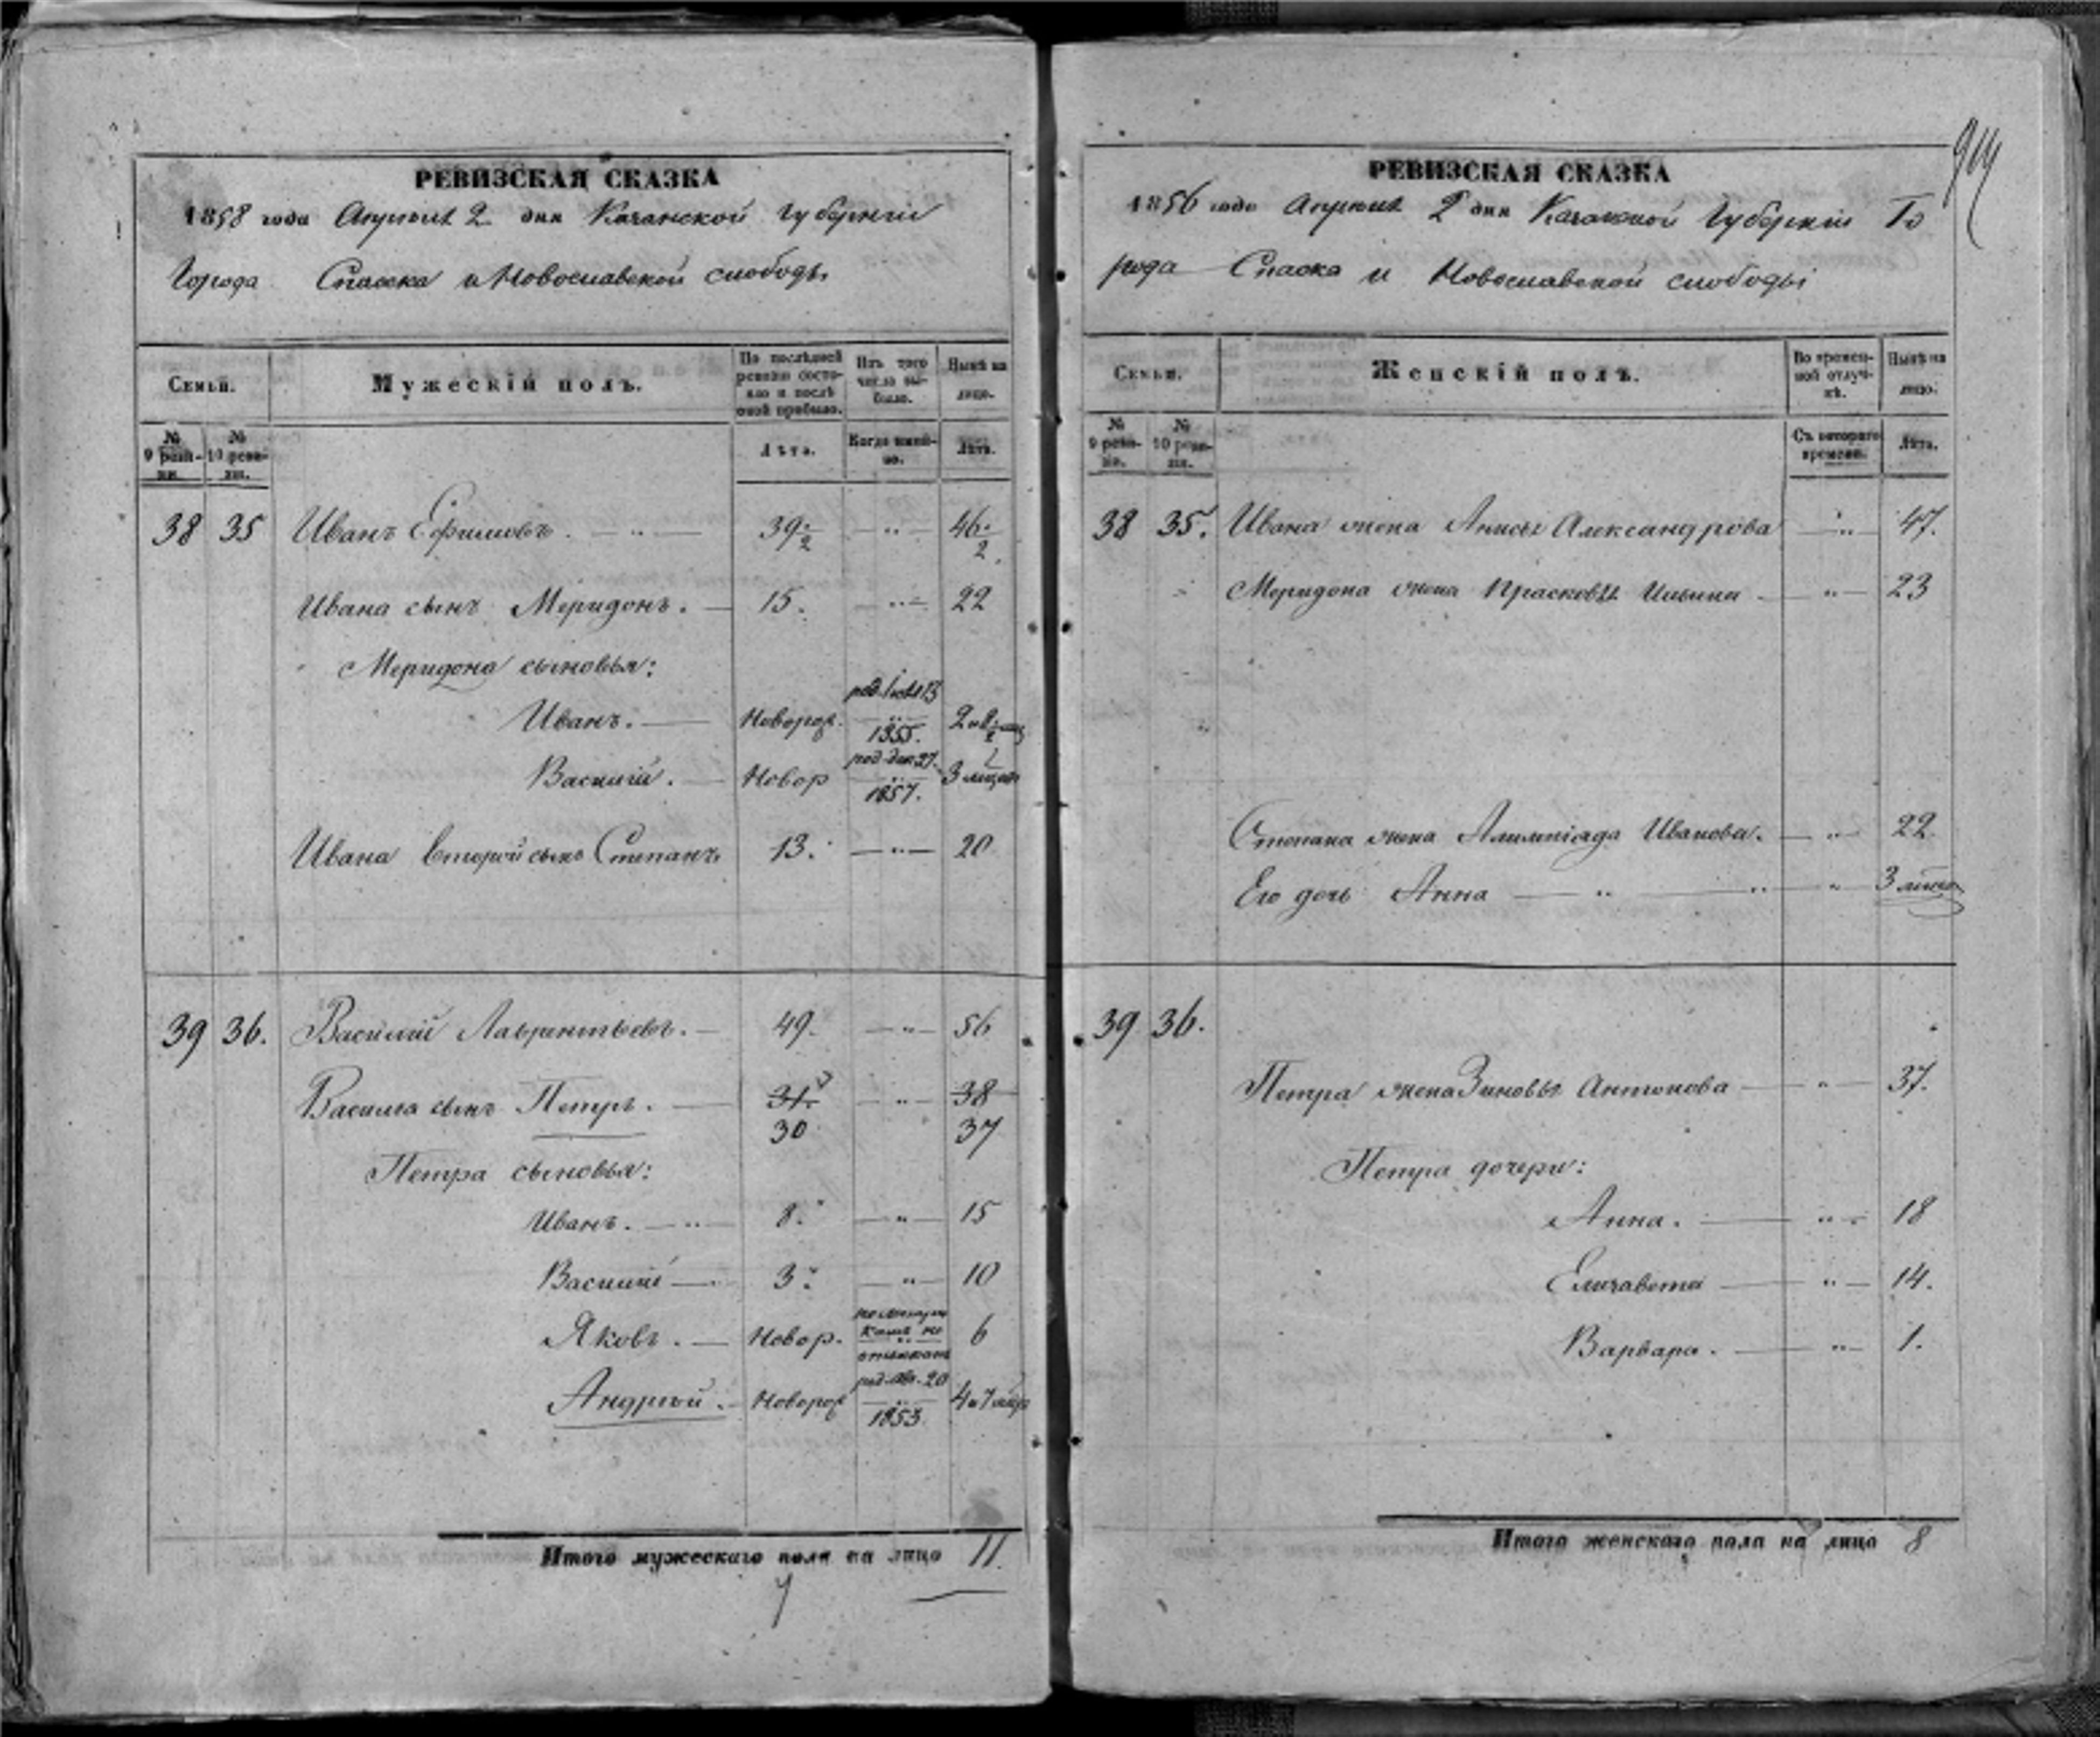 РЕВИЗСКАЯ СКАЗКА
1858 года Апрѣля 2 дня Казанской губерніи
Города Спасска и Новоспасской слободы
Семьи. Мужескій полъ. По послѣдней ревизіи состояло и послѣ оной прибыло. Изъ того числа выбыло. Нынѣ на лицо.
№ 9 ревизіи. № 10 ревизіи. Лѣта. Когда именно. Лѣта.
38 35 Иванъ Ефимовъ. 39 1/2 46 1/2
Ивана сынъ Меридонъ. 15. 22
Меридона сыновья:
Иванъ. Новорож. род. 13 1855. 2
Василій. Новор род. дек. 27. 1857. 3 мѣсяца
Ивана второй сынъ Степанъ 13. 20
39 36. Василій Лаврентьевъ. 49. 56
Василья сынъ Петръ. 31. 38
30 37
Петра сыновья:
Иванъ. 8. 15
Василій 3. 10
Яковъ. Новор. 6
Андрей. Новорож род. 20 1853. 4 и 7 мѣс
Итого мужескаго пола на лицо 11.
РЕВИЗСКАЯ СКАЗКА
1856 года Апрѣля 2 дня Казанской Губерніи Го
рода Спаска и Новоспасской слободы
Семьи. Женскій полъ. Во временной отлучкѣ. Нынѣ на лицо.
№ 9 ревизіи. № 10 ревизіи. Съ котораго времени. Лѣта.
38 35. Ивана жена Анисья Александрова 47.
Меридона жена Прасковья Ильина 23
Степана жена Алимпіада Иванова. 22.
Его дочь Анна 3
39 36.
Петра жена Зиновья Антонова 37.
Петра дочери:
Анна. 18
Елизавета 14.
Варвара. 1.
Итого женскаго пола на лицо 8